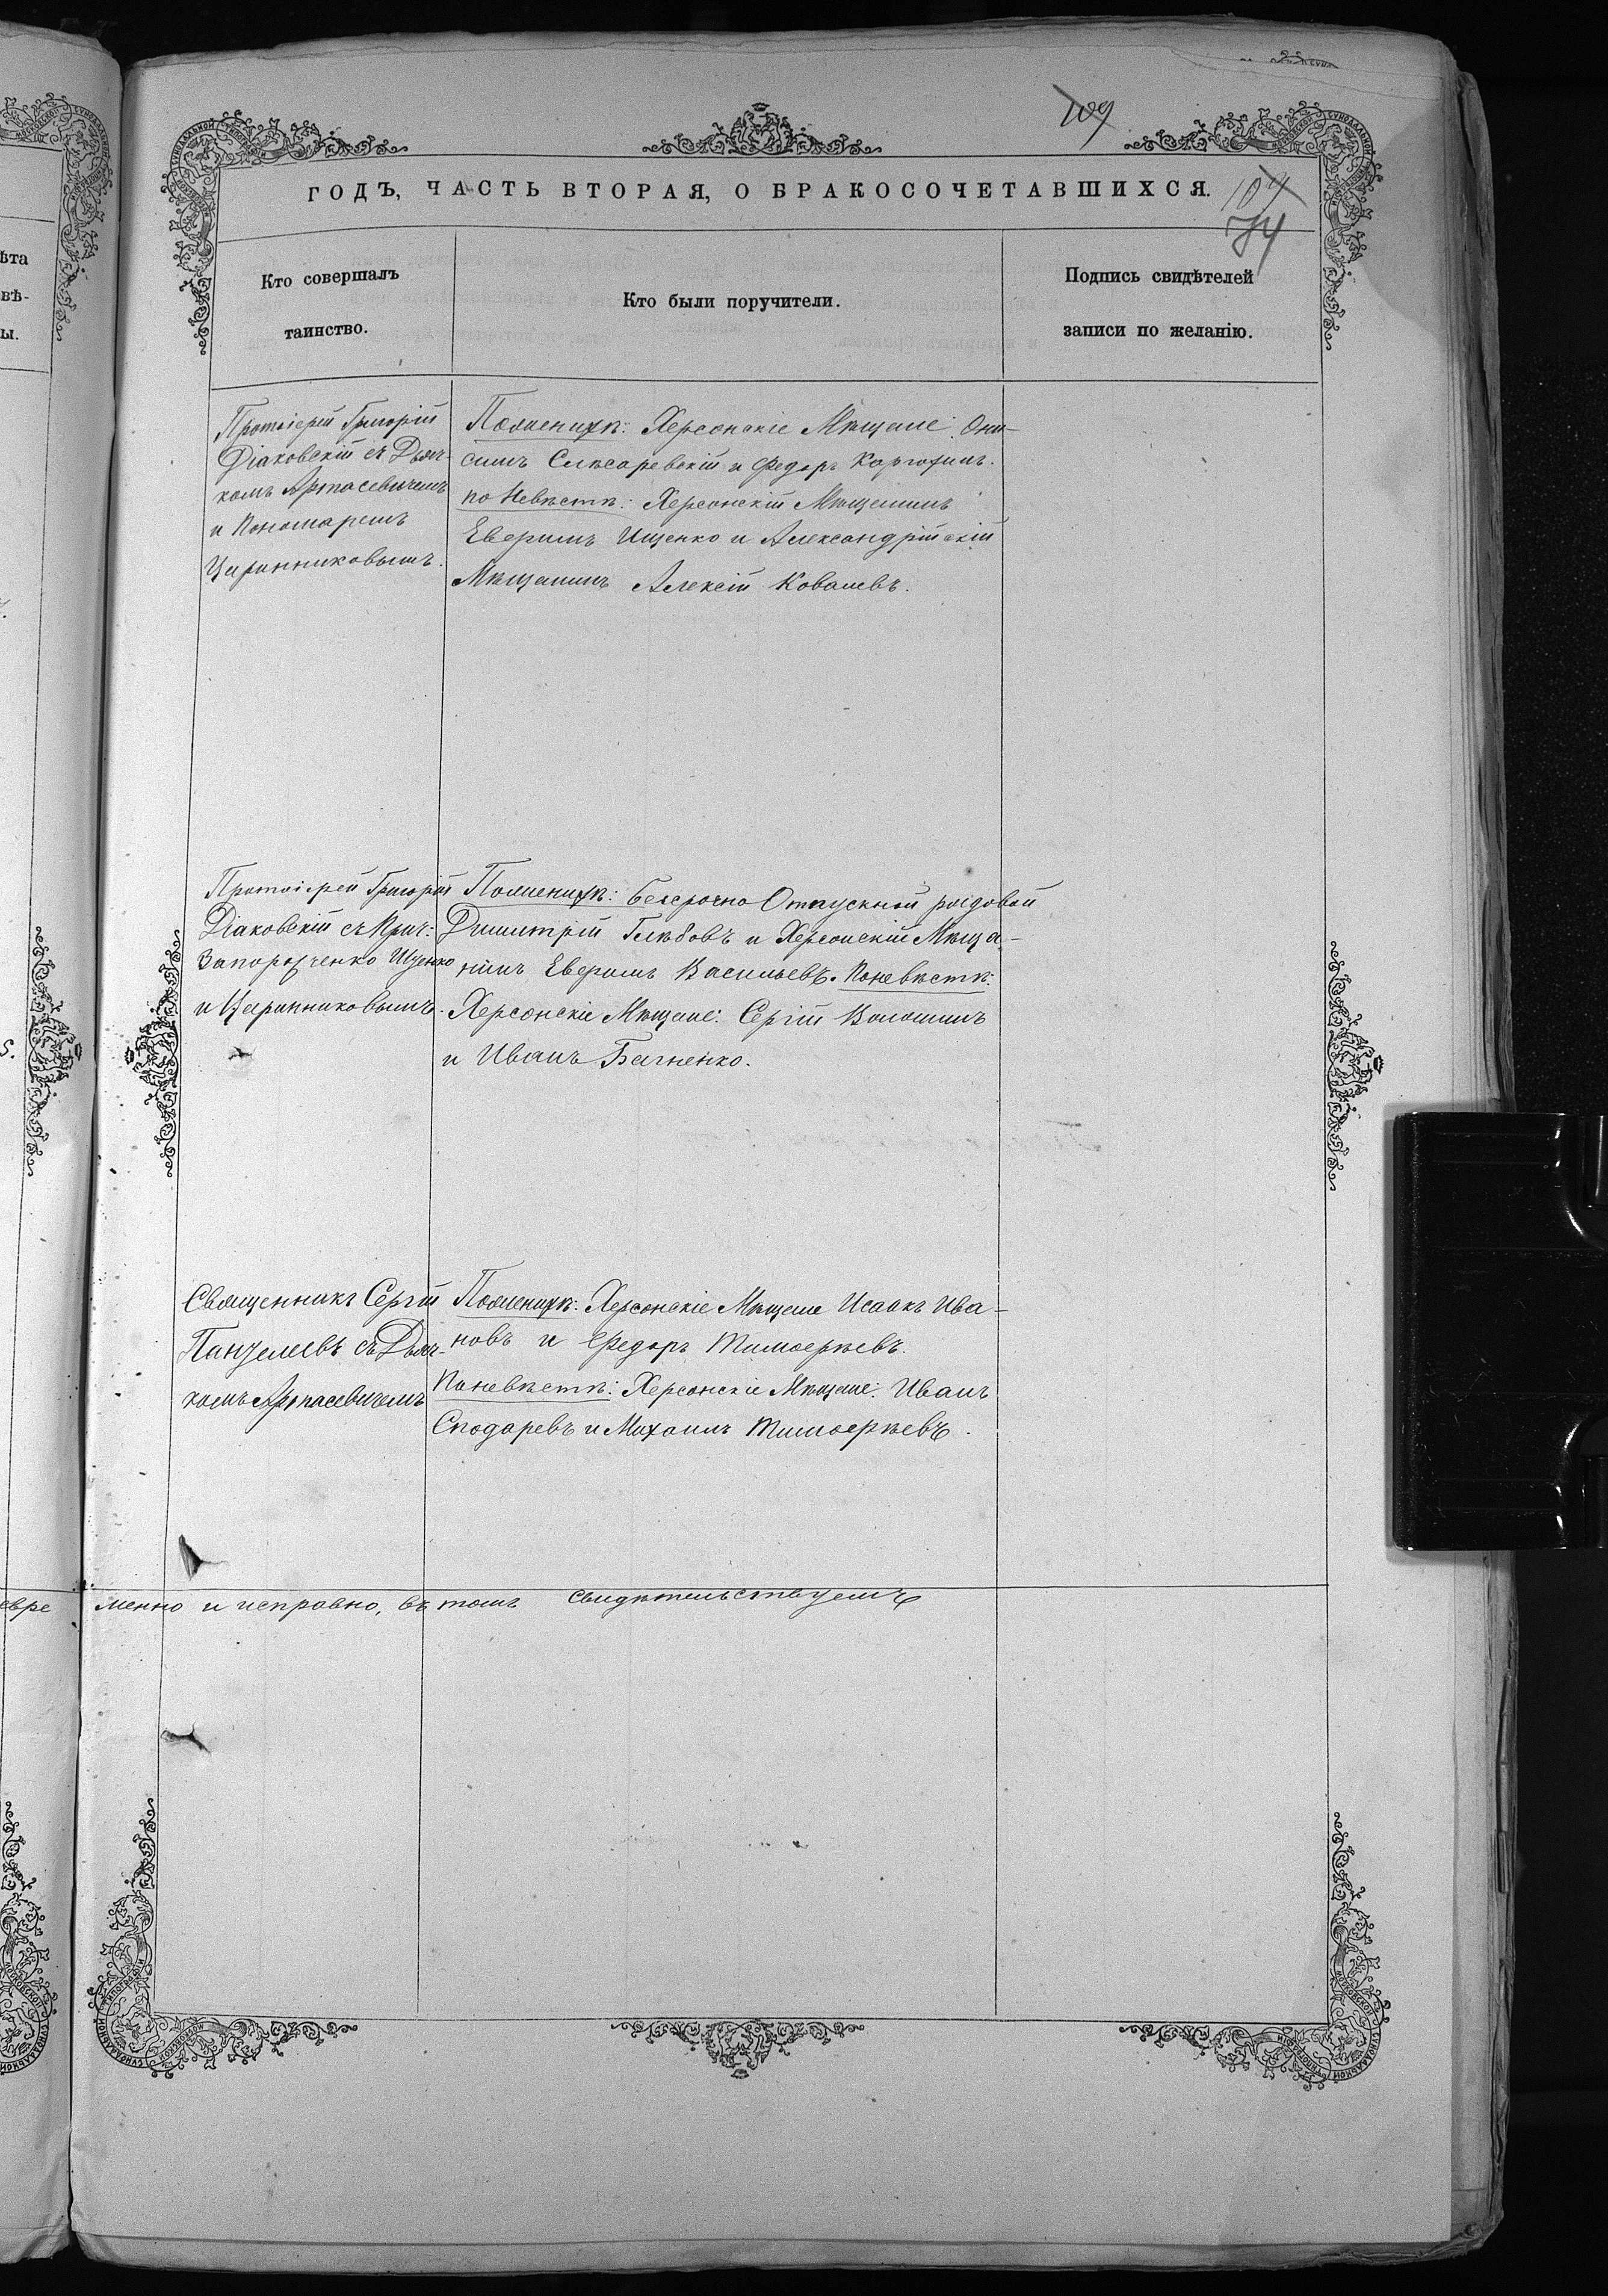 109
ГОДЪ, ЧАСТЬ ВТОРАЯ, О БРАКОСОЧЕТАВШИХСЯ.
109
74
Кто совершалъ
таинство.
Кто были поручители.
Подпись свидѣтелей
записи по желанію.
Протоіерей Григорій
Діаковскій съ Дьяч-
комъ Артасевичемъ
и Пономаремъ
Царинниковымъ.
По женихѣ: Херсонскіе Мѣщане: Они-
симъ Слѣсаревскій и Федоръ
по Невѣстѣ: Херсонскій Мѣщанинъ
Ефримъ Ищенко и Александрійскій
Мѣщанинъ Алексій Ковалевъ.
Протоіерей Григорій
Діаковскій съ Прич:
Запорожченко Ищенко
и Царинниковымъ.
По женихѣ: безсрочно Отпускной рядовой
Димитрій Глѣбовъ и Херсонскій Мѣща-
нинъ Ефримъ Васильевъ. По невѣстѣ:
Херсонскіе Мѣщане: Сергій Волошинъ
и Иванъ
Священникъ Сергій
Панчулеевъ съ Дьяч-
комъ Артасевичемъ
По женихѣ: Херсонскіе Мѣщане Исаакъ Ива-
новъ и Федоръ Тимофеевъ.
По невѣстѣ: Херсонскіе Мѣщане: Иванъ
Сподаревъ и Михаилъ Тимофеевъ.
евре менно и исправно, въ томъ свидѣтельствуемъ
ѣта
вѣ-
ы.